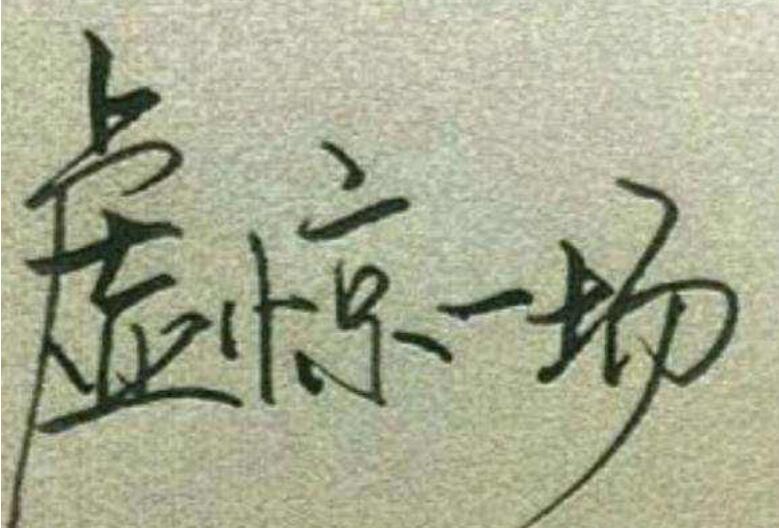 虚惊一场